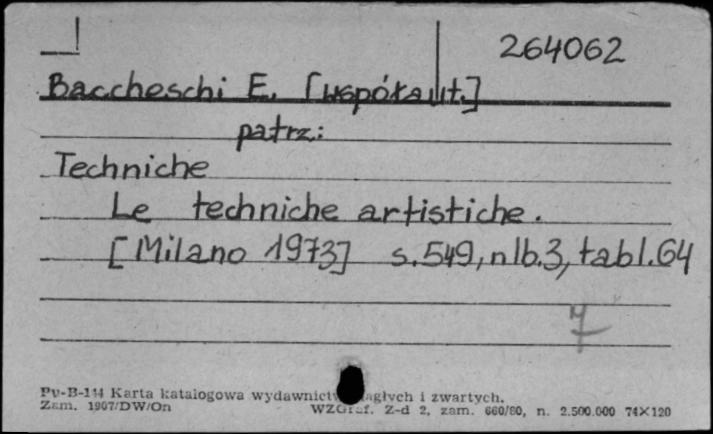 264062
Baccheschi E. [współaut.]
patrz:
Techniche
Le techniche artistiche.
[Milano 1973] s.549, nlb.3, tabl.64
7
Pu-B-144 Karta katalogowa wydawnictw ciągłych i zwartych.
Zam. 1907/DW/On WZGraf. Z-d 2, zam. 660/80, n. 2.500.000 74×120